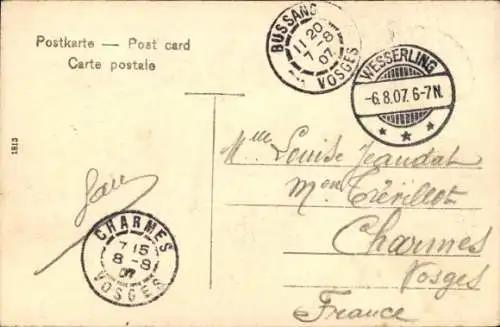 Postkarte — Post card
Carte postale
BUSSANG
11 20
7 - 8
07
VOSGES
WESSERLING
-6.8.07. 6-7N.
* * *
1813
Mlle Louise Jeandat
Mon Trévillot
Charmes
Vosges
France
CHARMES
7 15
8 - 8
07
VOSGES